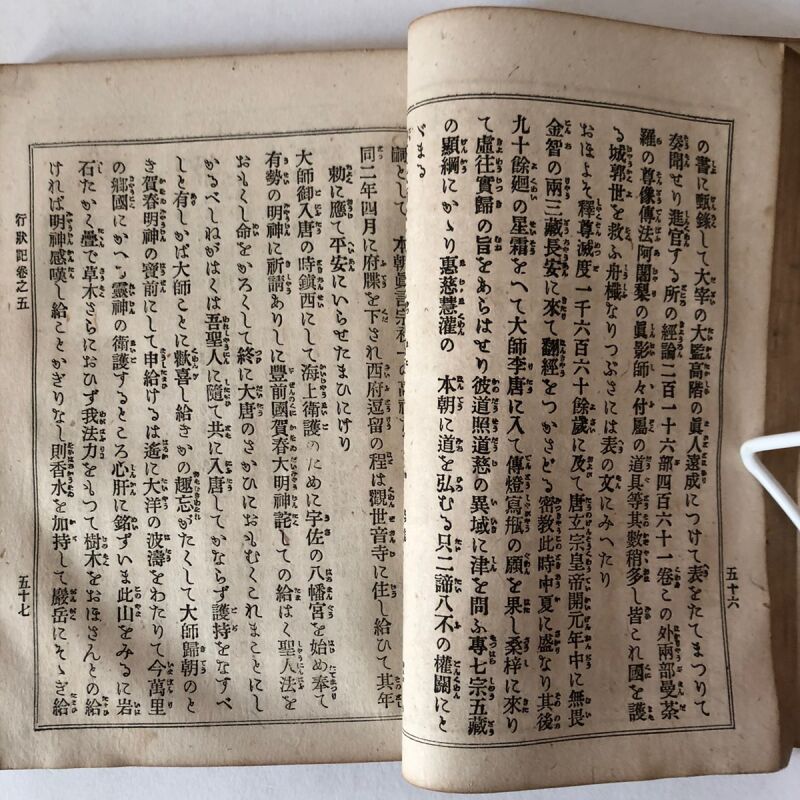 の書に甄錄して大宰の大監高階の眞人遠成につけて表をたてまつりて
奏聞せり進官する所の經論二百一十六部四百六十一卷この外兩部曼荼
羅の尊像傳法阿闍梨の眞影師々付屬の道具等其數稍多し皆これ國を護
る城郭世を救ふ舟檝なりつぶさには表の文にみへたり
おほよそ釋尊滅度一千六百六十餘歲に及て唐玄宗皇帝開元年中に無畏
金智の兩三藏長安に來て翻經をつかさどる密教此時中夏に盛なり其後
九十餘廻の星霜をへて大師李唐に入て傳燈寫瓶の願を果し桑梓に來り
て虛往實歸の旨をあらはせり彼道照道慈の異域に津を問ふ專七宗五藏
の顯綱にかゝり惠慈慧灌の 本朝に道を弘むる只二諦八不の權關にと
ゞまる
五十六
嗣として 本朝眞言宗
同二年四月に府牒を下され西府逗留の程は觀世音寺に住し給ひて其年
勅に應て平安にいらせたまひにけり
大師御入唐の時鎭西にして海上衛護のために宇佐の八幡宮を始め奉て
有勢の明神に祈請ありしに豐前國賀春大明神詫しての給はく聖人法を
おもくし命をかろくして終に大唐のさかひにおもむくこれまことにし
かるべしねがはくは吾聖人に隨て共に入唐してかならず護持をなすべ
しと有しかば大師ことに歡喜し給きかの趣忘がたくして大師歸朝のと
き賀春明神の寶前にして申給けるは遙に大洋の波濤をわたりて今萬里
の鄕國にかへる靈神の衛護するところ心肝に銘ずいま此山をみるに岩
石たかく疊で草木さらにおひず我法力をもつて樹木をおほさんとの給
ければ明神感嘆し給ことかぎりなし則香水を加持して嚴岳にそゝぎ給
行狀記卷之五
五十七